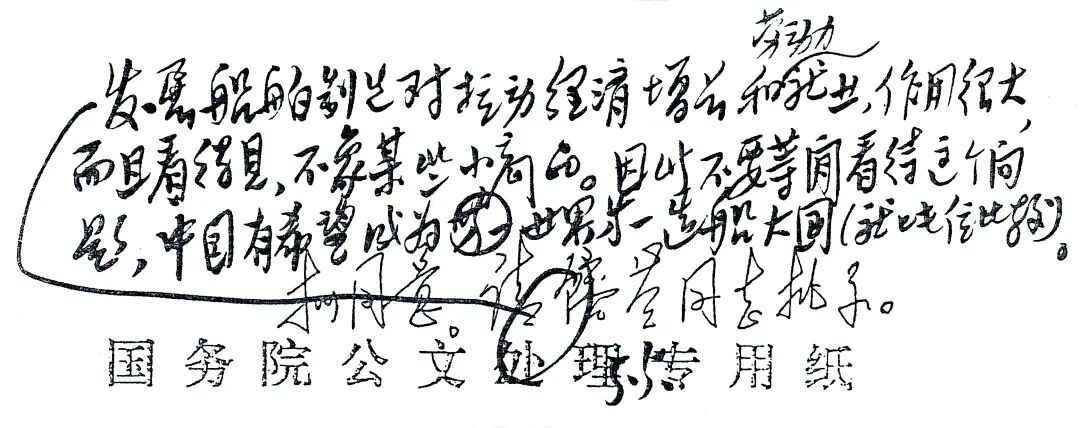 劳动力
发展船舶制造对拉动经济增长和就业,作用很大,
而且看得见,不象某些小商品。因此不要等闲看待这个问
题,中国有希望成为世界第一造船大国(就吨位比较)。
同意。请同志
国务院公文处理专用纸
5.5.